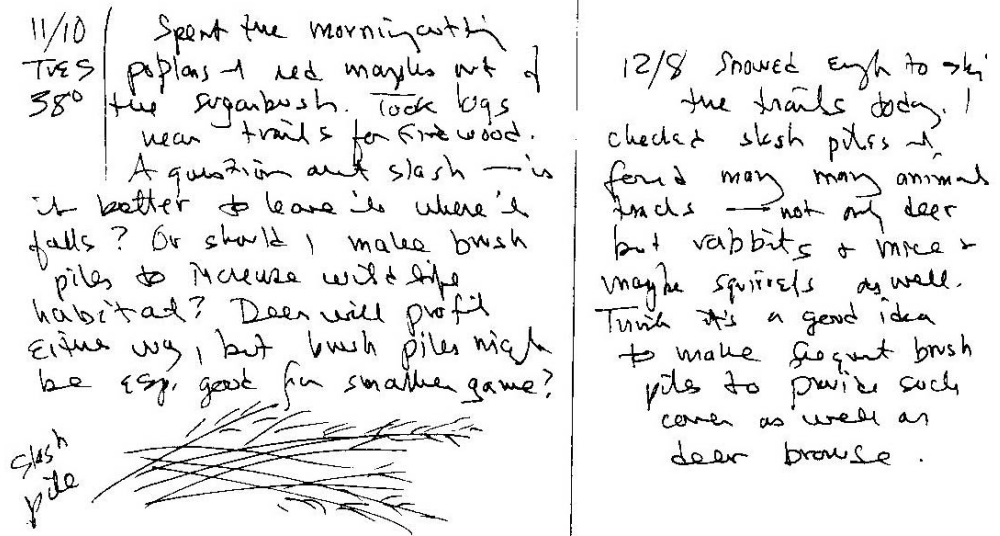 11/10
TUES
38°
Spent the morning cutting
poplars & red maples out of
the sugarbush. Took logs
near trails for firewood.
A question about slash — is
it better to leave it where it
falls? Or should I make brush
piles to increase wildlife
habitat? Deer will profit
either way, but brush piles might
be esp. good for smaller game?
slash
pile
12/8 Snowed enough to ski
the trails today. I
checked slash piles &
found many many animal
tracks — not only deer
but rabbits & mice &
maybe squirrels as well.
Think it's a good idea
to make frequent brush
piles to provide such
cover as well as
deer browse.